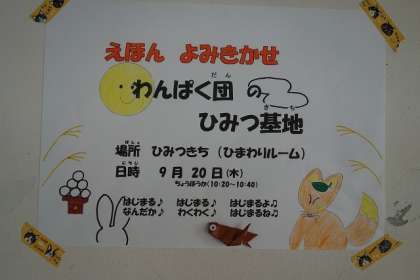 えほん よみきかせ
わんぱく団の
ひみつ基地
場所 ひみつきち (ひまわりルーム)
日時 9月 20日(木)
ちょうほうかつ(10:20~10:40)
はじまる♪ はじまる♪ はじまるよ♫
なんだか♪ わくわく♪ はじまるね♫